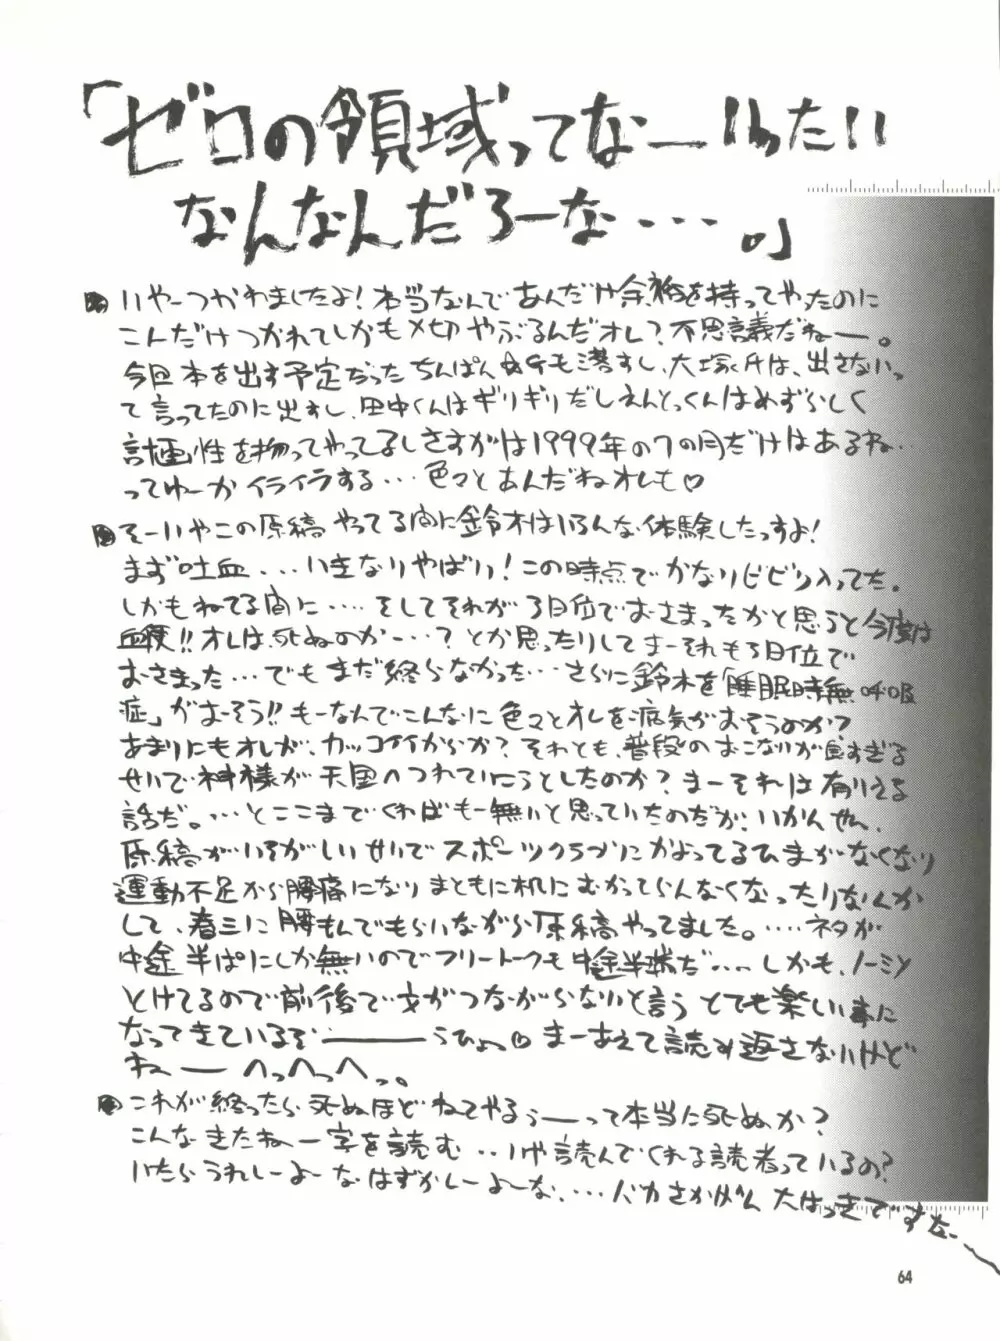 「ゼロの領域ってなーいったい
なんなんだろーな・・・。」
いやーつかれましたよ!本当なんであんだけ余裕を持ってやったのに
こんだけつかれてしかも〆切やぶるんだオレ?不思議だねー。
今回本を出す予定だったちんぱんGも落すし、大塚氏は、出さないっ
て言ってたのに出すし、田中くんはギリギリだしえんとっくんはめずらしく
計画性を持ってやってるしさすがは1999年の7の月だけはあるね…
ってゆーかイライラする…色々とあんだねオレも♡
そーいやこの原稿やってる間に鈴木はいろんな体験したっすよ!
まず吐血...いきなりやばい!この時点でかなりビビり入ってた。
しかもねてる間に....そしてそれが3日位でおさまったかと思うと今度は
血便!!オレは死ぬのかー…?とか思ったりしてまーそれも3日位で
おさまった...でもまだ終らなかった…さらに鈴木を「睡眠時無呼吸
症」がおそう!!もーなんでこんなに色々とオレを病気がおそうのか?
あまりにもオレが、カッコイイからか?それとも、普段のおこないが良すぎる
せいで神様が天国へつれていこうとしたのか?まーそれは有りえる
話だ。…とここまでくればもー無いと思っていたのだが、いかんせん、
原稿がいそがしいせいでスポーツクラブにかよってるひまがなくなり
運動不足から腰痛になりまともに机にむかってらんなくなったりなんか
して、春三に腰もんでもらいながら原稿やってました。....ネタが
中途半ぱにしか無いのでフリートークも中途半端だ....しかも、ノーミソ
とけてるので前後で文がつながらないと言うとても楽しい事に
なってきているぞーーうひょっ♡まーあえて読み返さないけど
ねーーへっへっへっ。
これが終ったら死ぬほどねてやるぅーって本当に死ぬか?
こんなきたねー字を読む..いや読んでくれる読者っているの?
いたらうれしーよーなはずかしーよーな....バカさかげん大はっきですなー
64